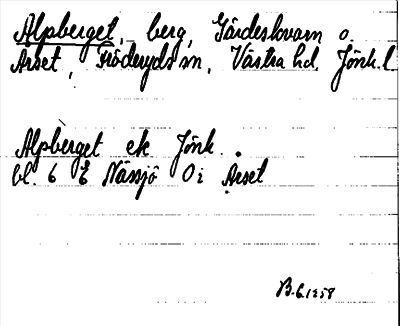 Alpberget, berg, Gärdeskvarn o.
Året, Fröderyds sn, Västra hd. Jönk. l
Alpberget ek Jönk.
bl. 6 E Nässjö Oi Året
B.G. 1958